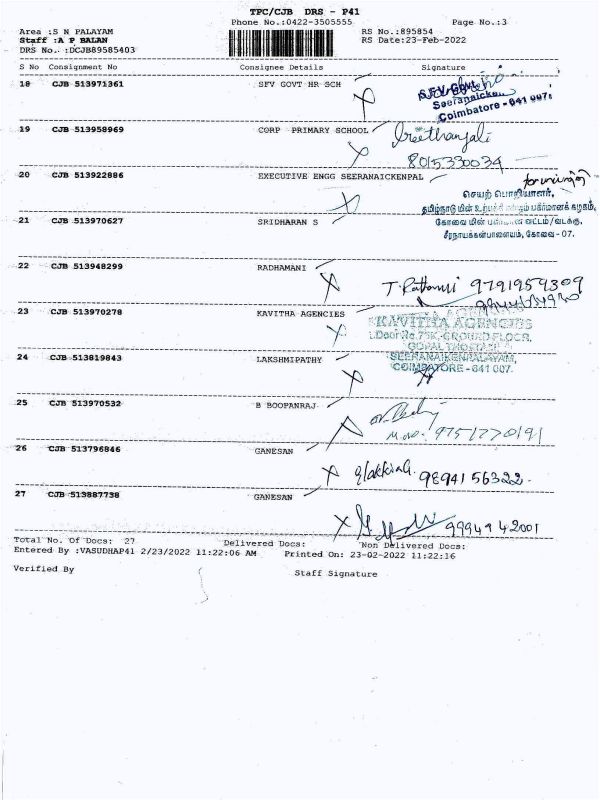 TPC/CJB DRS - P41
Phone No.:0422-3505555 Page No.:3
Area :S N PALAYAM RS No.:895854
Staff :A P BALAN RS Date:23-Feb-2022
DRS No. :DCJB89585403
S No Consignment No Consignee Details Signature
18 CJB 513971361 SFV GOVT HR SCH
S.F.V. Govt.
Seeranaicken
Coimbatore - 641 007.
19 CJB 513958969 CORP PRIMARY SCHOOL Preethanjali
8015330034
20 CJB 513922886 EXECUTIVE ENGG SEERANAICKENPAL
செயற் பொறியாளர்,
தமிழ்நாடு மின் உற்பத்தி மற்றும் பகிர்மானக் கழகம்,
கோவை மின் பகிர்மான வட்டம்/வடக்கு,
சீரநாயக்கன்பாளையம், கோவை - 07.
21 CJB 513970627 SRIDHARAN S
22 CJB 513948299 RADHAMANI
9791959309
23 CJB 513970278 KAVITHA AGENCIES
KAVITHA AGENCIES
Door No.75K, GROUND FLOOR,
GOPAL
SEERANAIKENPALAYAM,
COIMBATORE - 641 007.
24 CJB 513819843 LAKSHMIPATHY
25 CJB 513970532 B BOOPANRAJ
9751770191
26 CJB 513796846 GANESAN
9894156322
27 CJB 513887738 GANESAN
9994942001
Total No. Of Docs: 27 Delivered Docs: Non Delivered Docs:
Entered By :VASUDHAP41 2/23/2022 11:22:06 AM Printed On: 23-02-2022 11:22:16
Verified By Staff Signature